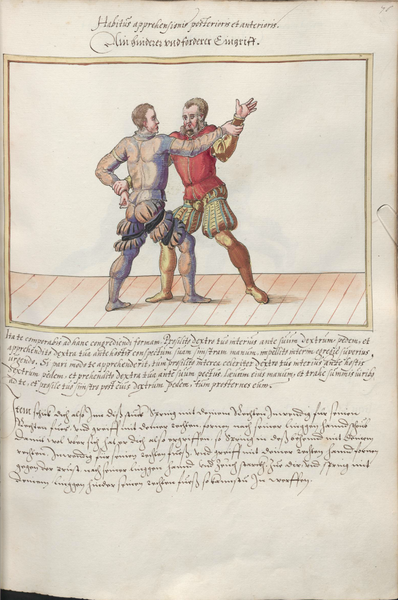 75
Habitus apprehensionis posterioris et anterioris.
Ain hinderer vnd forderer Eingriff.
Ita te comparabis ad hanc congrediendi formam. Prosilito dextro tuo interius ante suum dextrum pedem, et
apprehendito dextra tua ante hostis conspectum suam sinistram manum, impellito interim egregie superius
urgendo. Si pari modo te apprehenderit, tum prosilito interea celeriter dextro tuo interius ante hostis
dextrum pedem, et prehendito dextra tua ante suum pectus, laevam eius manum, et trahe summis viribus
ad te, et prosili tuo sinistro post eius dextrum pedem, tum prosternes eum.
Item schick dich also Inn das stuck spring mit deinem Rechten Inwendig für seinen
Rechten fuos vnd greiff mit deiner rechten fornen nach seiner linggen hand
damit wol vor sich hat er dich also ergriffen so spring in des behend mit deinem
rechten Inwendig für seinen rechten fuos, vnd greiff mit deiner rechten hannd fornen
gegen der prust nach seiner linggen hannd vnd zeuch starck zuo dir vnd spring mit
deinem linggen hinder seinen rechten fuos so kanstu In werffen.